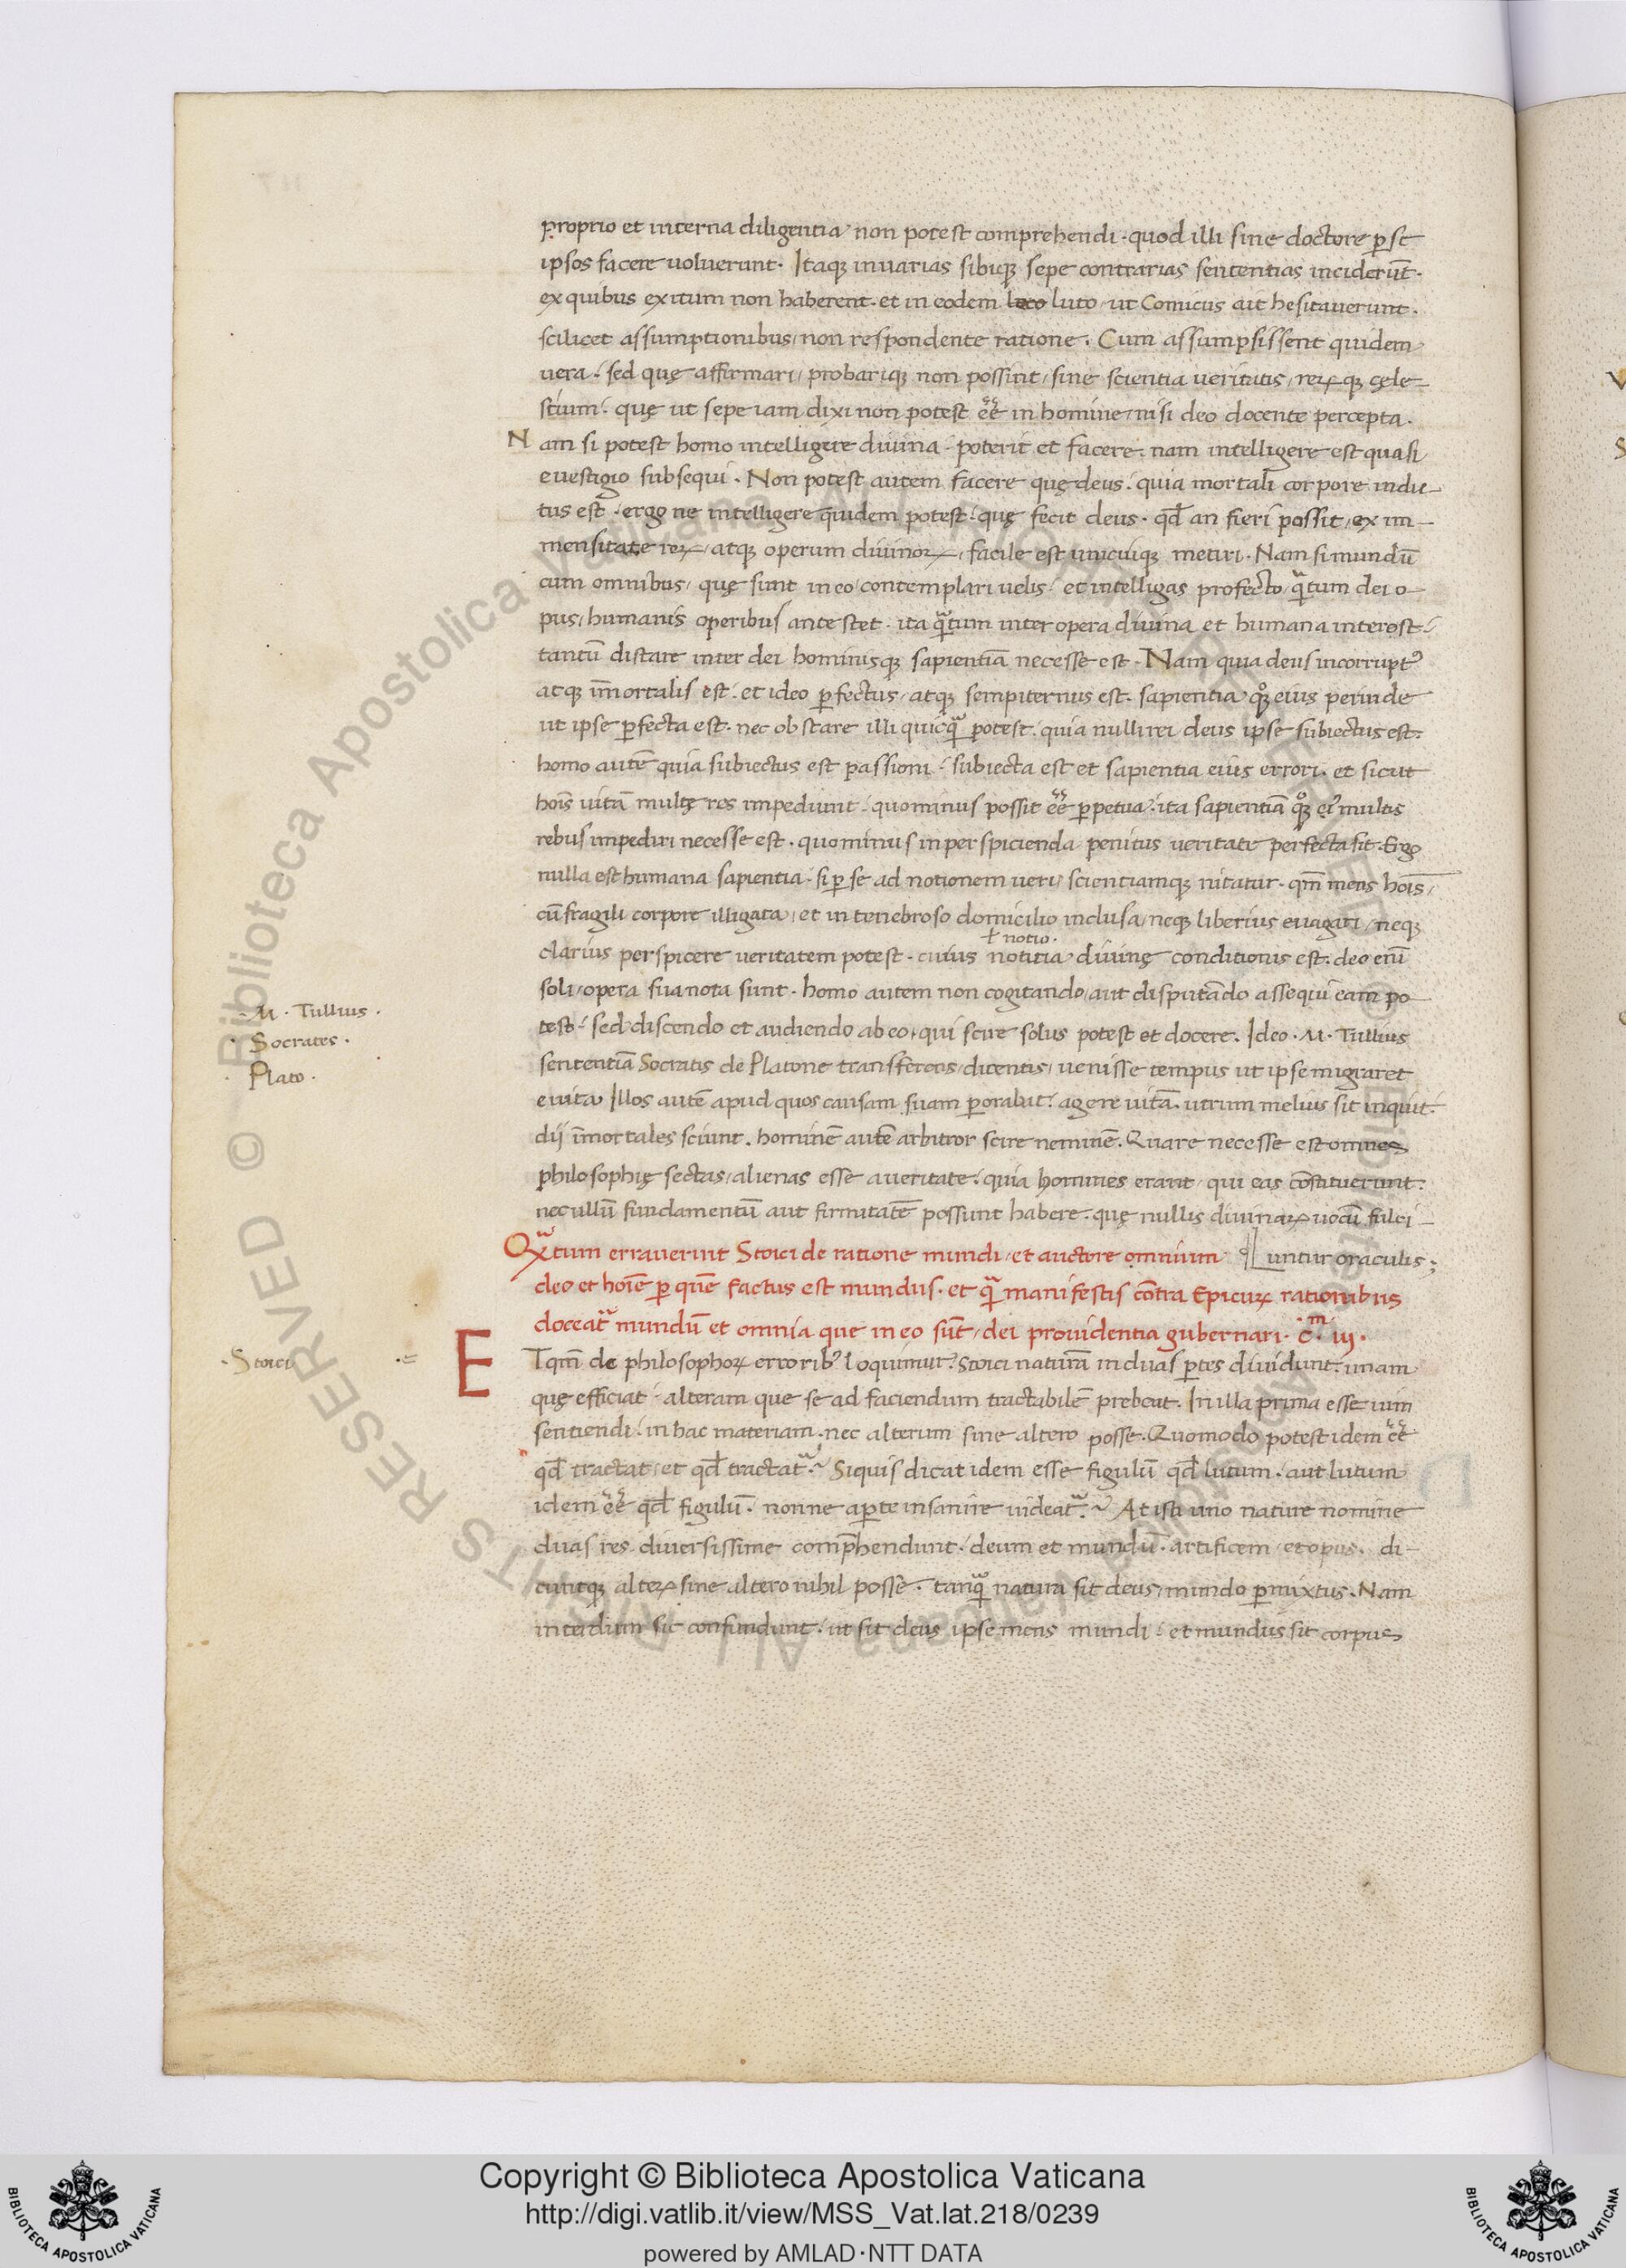 proprio et interna diligentia non potest comprehendi · quod illi sine doctore p̱ se
ipsos facere uoluerunt · Itaqꝫ in uarias sibiqꝫ sepe contrarias sententias inciderūt ·
ex quibus exitum non haberent · et in eodem loco luto / ut Comicus ait hesitauerunt ·
scilicet assumptionibus / non respondente ratione · Cum assumpsissent quidem
uera · sed quę affirmari / probariqꝫ non possint / sine scientia ueritatis / reꝝqꝫ cęle-
stium · quę ut sepe iam dixi non potest ēē in homine / nisi deo docente percepta ·
Nam si potest homo intelligere diuina · poterit et facere · nam intelligere est quasi
e uestigio subsequi · Non potest autem facere quę deus · quia mortali corpore indu-
tus est · ergo ne intelligere quidem potest · quę fecit deus · qđ an fieri possit / ex im-
mensitate reꝝ / atqꝫ operum diuinoꝝ / facile est unicuiqꝫ metiri · Nam si mundū
cum omnibus / quę sunt in eo / contemplari uelis · et intelligas profecto / qᵃ̄tum dei o-
pus / humanis operibus antestet · ita qᵃ̄tum inter opera diuina et humana interest ·
tantū distare inter dei hominisqꝫ sapientiā necesse est · Nam quia deus incorruptꝰ
atqꝫ īmortalis est · et ideo ꝑfectus / atqꝫ sempiternus est · sapientia qꝫ° eius perinde
ut ipse ꝑfecta est · nec obstare illi quicqᵃ̄ potest · quia nulli rei deus ipse subiectus est ·
homo autē quia subiectus est passioni · subiecta est et sapientia eius errori · et sicut
hoīs uitā multę res impediunt · quominus possit ēē ꝑpetua · ita sapientiā qꝫ° eiꝰ multis
rebus impediri necesse est · quominus in perspicienda penitus ueritate perfecta sit · Ergo
nulla est humana sapientia · si ꝑ se ad notionem ueri / scientiamqꝫ nitatur · qm̄ mens hoīs /
cū fragili corpore illigata / et in tenebroso domicilio inclusa / neqꝫ liberius euagari / neqꝫ
ł notio ·
clarius perspicere ueritatem potest · cuius notitia diuinę conditionis est · deo enī
soli / opera sua nota sunt · homo autem non cogitando / aut disputādo assequi eam po-
test · sed discendo et audiendo ab eo / qui scire solus potest et docere · Ideo · M · Tullius
sententiā Socratis de Platone transferens / dicentis / uenisse tempus ut ipse migraret
e uita Illos autē apud quos causam suam ꝑorabat · agere uitā · utrum melius sit inquit ·
dij īmortales sciunt · hominē autē arbitror scire neminē · Quare necesse est omnes
philosophię sectas / alienas esse a ueritate · quia homines erant / qui eas cōstituerunt ·
nec ullū fundamentū aut firmitatē possunt habere · quę nullis diuinaꝝ uocū fulci-
untur oraculis ;
Qᵃ̄tum errauerint Stoici de ratione mundi / et auctore omnium
deo et hoīe ꝑ quē factus est mundus · et qᵃ̄ manifestis cōtra Epicuꝝ rationibus
doceatᵃ mundū et omnia que in eo sūt / dei prouidentia gubernari · cᵐ · iij ·
ET qm̄ de philosophoꝝ erroribꝰ loquimur · Stoici naturā in duas ꝑtes diuidunt · unam
quę efficiat · alteram que se ad faciendum tractabilē prebeat · In illa prima esse uim
sentiendi · in hac materiam · nec alterum sine altero posse · Quomodo potest idem ēē
qđ tractat / et qđ tractatᵃ · Siquis dicat idem esse figulū qđ lutum · aut lutum
idem ēē qđ figulū · nonne aꝑte insanire uideatᵃ · At isti uno nature nomine
duas res diuersissime comp̄hendunt · deum et mundū · artificem / et opus · di-
cuntqꝫ alteꝝ sine altero nihil posse · tanqᵃ̄ natura sit deus / mundo ꝑmixtus · Nam
interdum sic confundunt · ut sit deus ipse mens mundi · et mundus sit corpus
· M · Tullius ·
· Socrates ·
· Plato ·
· Stoici
Copyright © Biblioteca Apostolica Vaticana
http://digi.vatlib.it/view/MSS_Vat.lat.218/0239
powered by AMLAD·NTT DATA